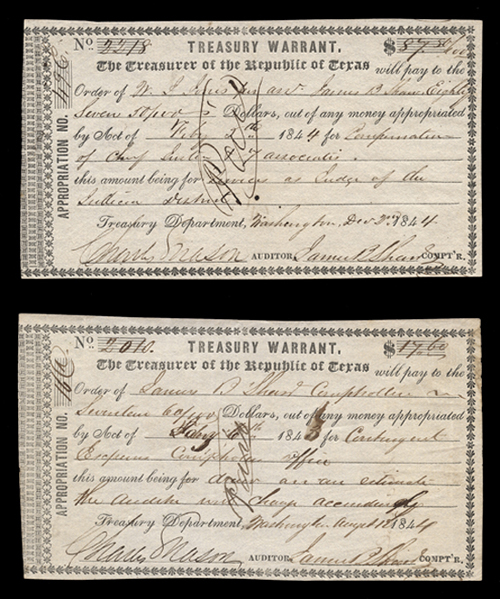 No. 2218 TREASURY WARRANT. $87.50/100
The Treasurer of the Republic of Texas will pay to the
Order of W. J. James B Shaw Eighty
Seven 50/100 Dollars, out of any money appropriated
by Act of Feby 1844 for Compensation
of Chief Justice & associates.
this amount being for services as Judge of the
District.
Treasury Department, Washington, Dec 1844
Charles Mason AUDITOR. James B Shaw COMPT'R.
APPROPRIATION NO.
No. 2010. TREASURY WARRANT. $17.60
The Treasurer of the Republic of Texas will pay to the
Order of James B Shaw Comptroller
Seventeen 60/100 Dollars, out of any money appropriated
by Act of Feby 184 for Contingent
Expenses Comptroller office
this amount being for an estimate
the Auditor will charge accordingly
Treasury Department, Washington, Augt 1844
Charles Mason AUDITOR. James B Shaw COMPT'R.
APPROPRIATION NO.